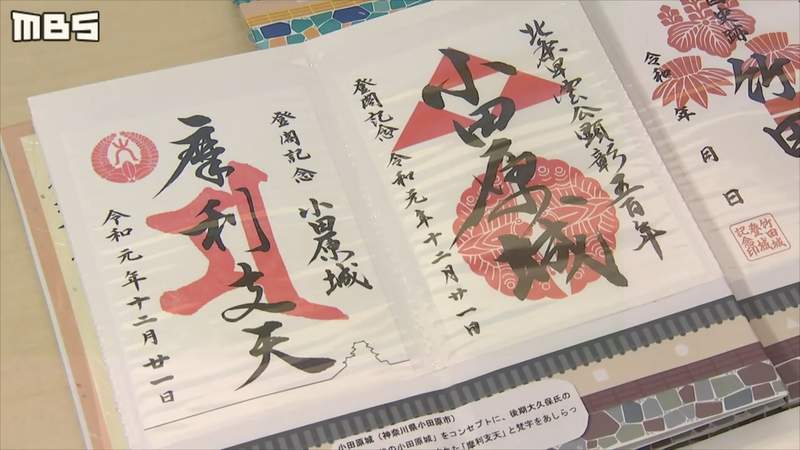 MBS
登閣記念
小田原城
摩利支天
令和元年十二月廿一日
北条早雲公顕彰五百年
小田原城
登閣記念
令和元年十二月廿一日
竹田
令和 年 月 日
竹田城
登城
記念印
小田原城（神奈川県小田原市）
の小田原城」をコンセプトに、後期大久保氏の
「摩利支天」と梵字をあしらっ